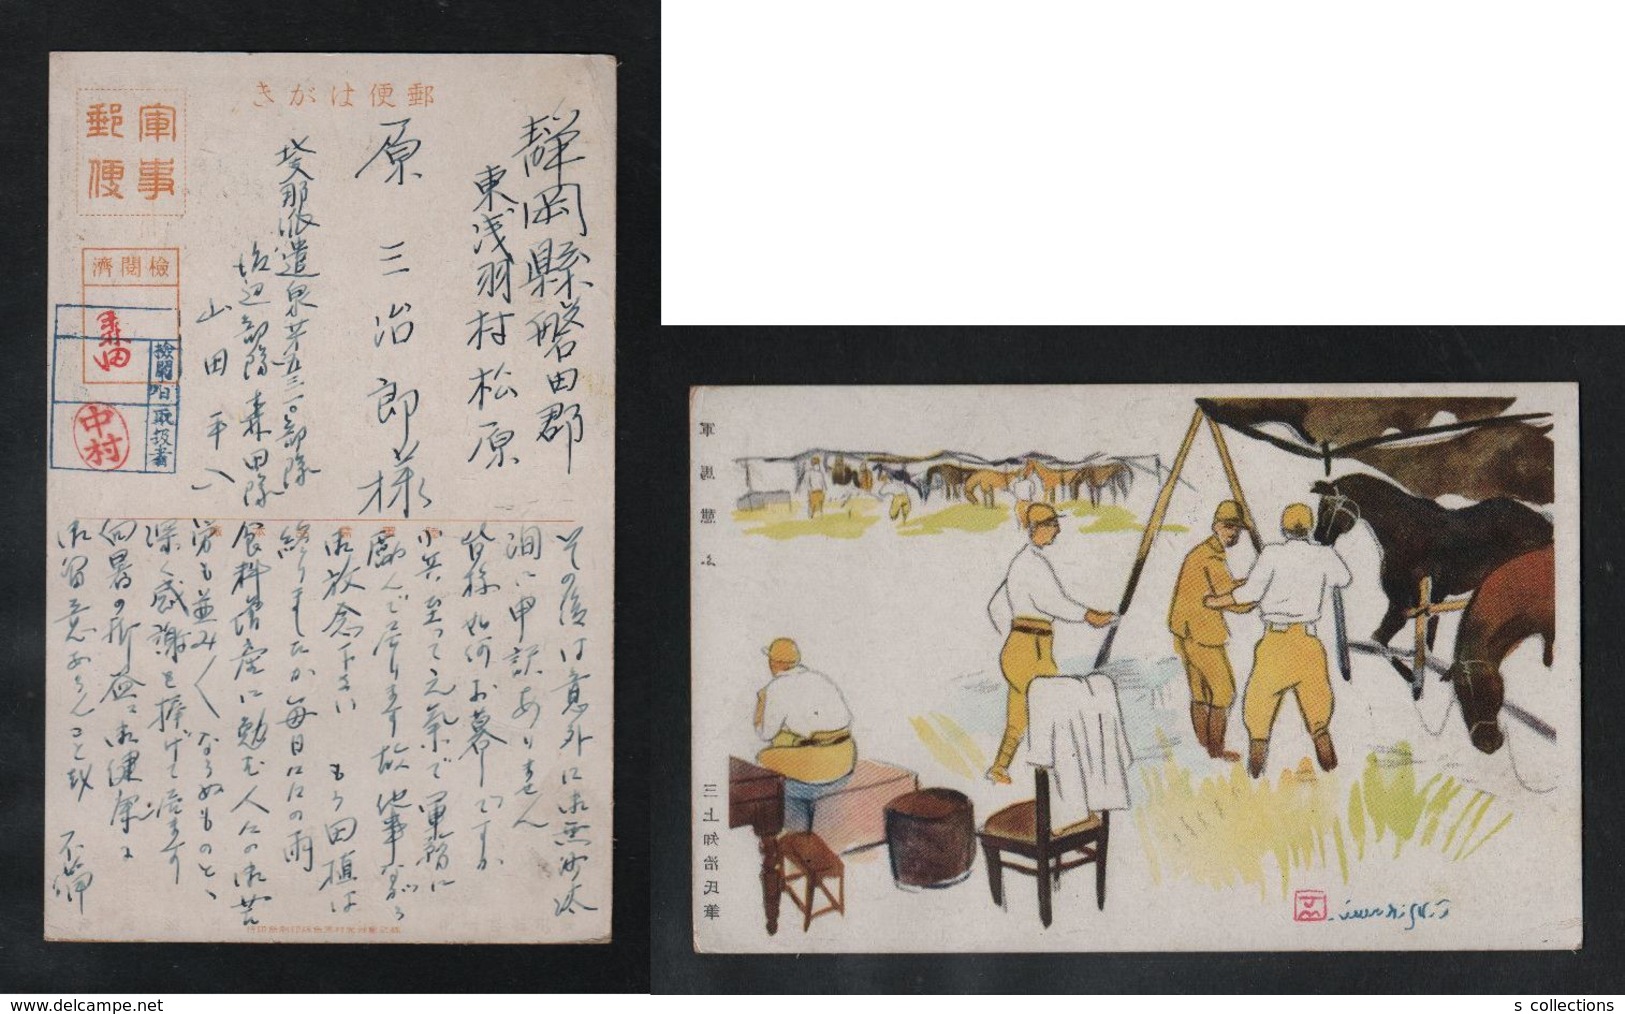 郵便はがき
軍事
郵便
検閲済
森田
検閲
取扱者
中村
静岡縣磐田郡
東浅羽村松原
原三治郎様
支那派遣泉第五三一〇部隊
渡辺部隊森田隊
山田平八
その後は意外に御無沙汰
洵に申訳ありません
皆様如何お暮しですか
小兵至って元氣で軍務に
励んで居ります故他事ながら
御放念下さい もう田植は
終りましたか毎日この雨
食料増産に勉む人々の御苦
労も並み〱ならぬものと、
深く感謝を捧げて居ます
向暑の折益々御健康に
御留意あらんことを
不備
軍馬
三上知治氏筆
s collections